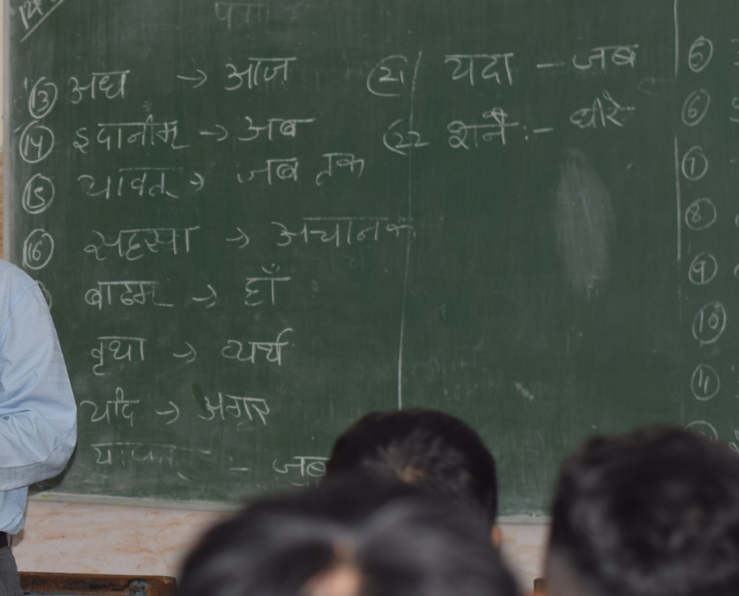 (13) अध → आज
(14) इदानीम् → अब
(15) यावत् → जब तक
(16) सहसा → अचानक
बाढम् → हाँ
वृथा → व्यर्थ
यदि → अगर
यावत् :- जब
(21) यदा - जब
(22 शनैः - धीरे
(5)
(6)
(7)
(8)
(9)
(10)
(11)